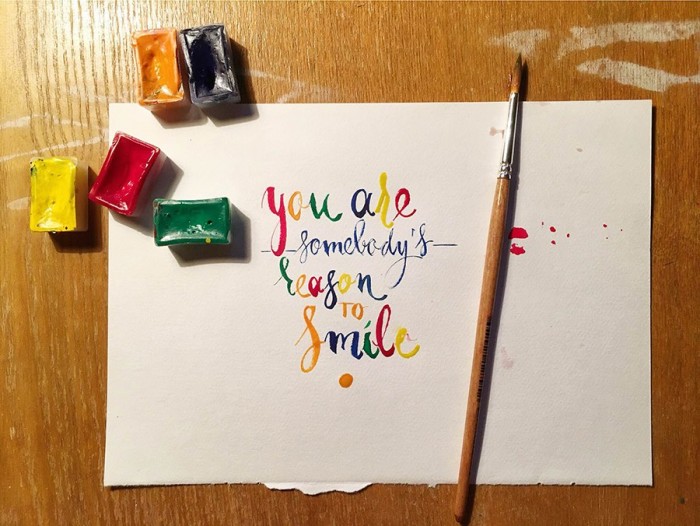 you are
somebody's
reason
TO
smile